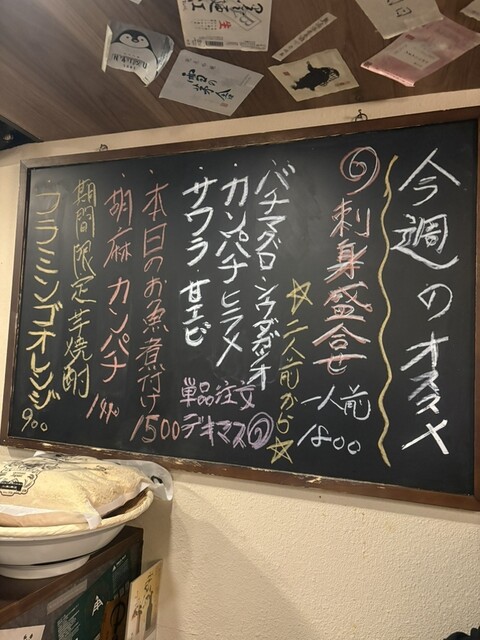 今週のオススメ
刺身盛合せ 一人前 1800
☆二人前から☆
バチマグロ・ソウダガツオ
・カンパチ・ヒラメ
・サワラ・甘エビ
単品注文
デキマス
・本日のお魚煮付け 1500
・胡麻カンパチ
期間限定芋焼酎
・フラミンゴオレンジ 900
雪の茅舎